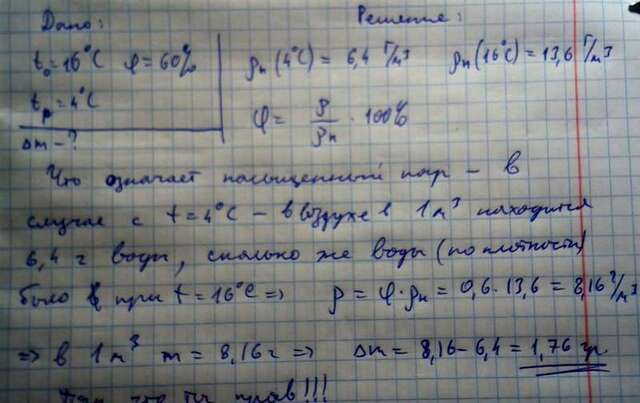 Дано:
Решение:
t₀=16°C φ=60%
ρн(4°C) = 6,4 г/м³ ρн(16°C) = 13,6 г/м³
tр=4°C
Δm-?
φ = ρ/ρн · 100%
Что означает насыщенный пар – в
случае с t=4°C – в воздухе в 1м³ находится
6,4 г воды, сколько же воды (по плотности)
было в при t=16°C => ρ = φ·ρн = 0,6·13,6 = 8,16 г/м³
=> в 1м³ m = 8,16г => Δm = 8,16-6,4 = 1,76 гр.
что ты прав!!!